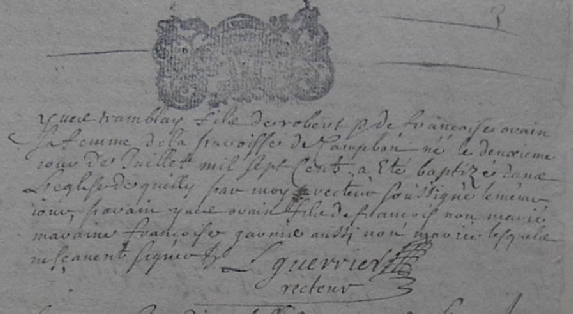 yues tramblay fils de robert & de francoise orain
sa femme de la paroisse de Campbon né le deuxieme
iour de Juillet mil sept Cent a Eté baptizé dans
L'eglise de quilly par moy recteur soussigné le meme
iour parain yues orain fils de francois non marié
maraine francoise garnier aussi non mariée lesquels
ne scauent signer
L guerrier
recteur